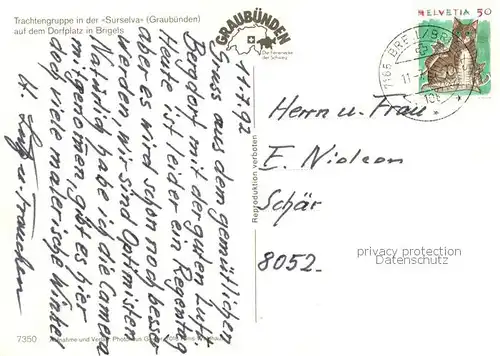 Trachtengruppe in der «Surselva» (Graubünden)
auf dem Dorfplatz in Brigels
GRAUBÜNDEN
Die Ferienecke
der Schweiz
HELVETIA 50
7165 BREIL/BR
11.7.92
Gruss aus dem gemütlichen
Bergdorf mit der guten Luft.
Heute ist leider ein Regentag
aber es wird schon noch besser
werden, wir sind Optimisten
Natürlich habe ich die Camera
mitgenomen, gibt es hier
doch viele malerische Winkel
H. u. Frauchen
Herrn u. Frau
E. Nielsen
Schär
8052.
Reproduktion verboten
privacy protection
Datenschutz
7350
Aufnahme und Verlag Photo